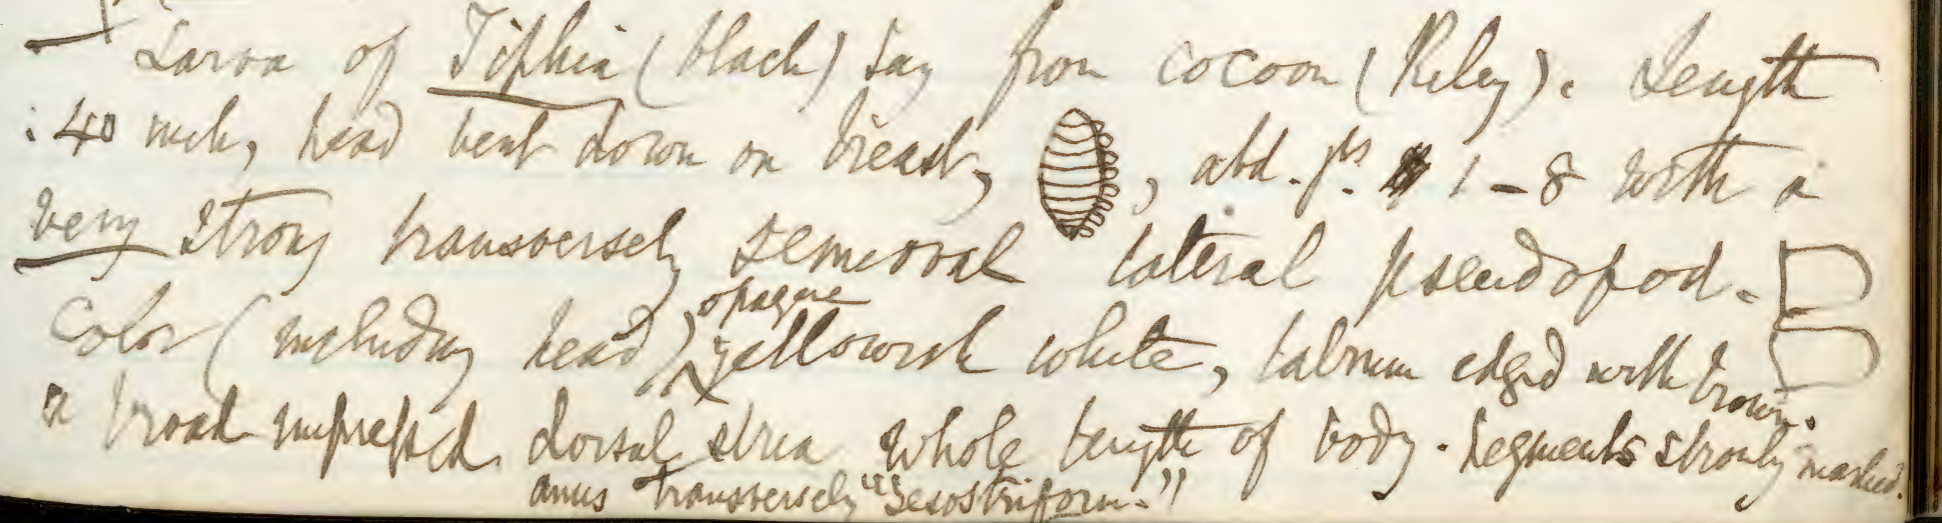 Larva of Tiphia (black) Say from cocoon (Riley). Length
.40 inch, head bent down on breast, , abd. jts. 1–8 with a
very strong transversely semioval lateral pseudopod.
Color (including head) opaque yellowish white, labrum edged with brown.
a broad impressed dorsal stria whole length of body. Segments strongly marked.
anus transversely "sesostriform."